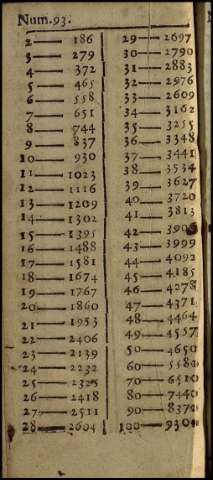 Num.93.
2 — 186
3 — 279
4 — 372
5 — 465
6 — 558
7 — 651
8 — 744
9 — 837
10 — 930
11 — 1023
12 — 1116
13 — 1209
14 — 1302
15 — 1395
16 — 1488
17 — 1581
18 — 1674
19 — 1767
20 — 1860
21 — 1953
22 — 2406
23 — 2139
24 — 2232
25 — 2325
26 — 2418
27 — 2511
28 — 2604
29 — 2697
30 — 2790
31 — 2883
32 — 2976
33 — 2609
34 — 3162
35 — 3255
36 — 3348
37 — 3441
38 — 3534
39 — 3627
40 — 3720
41 — 3813
42 — 3906
43 — 3999
44 — 4092
45 — 4185
46 — 4278
47 — 4371
48 — 4464
49 — 4557
50 — 4650
60 — 5580
70 — 6510
80 — 7440
90 — 8370
100 — 930